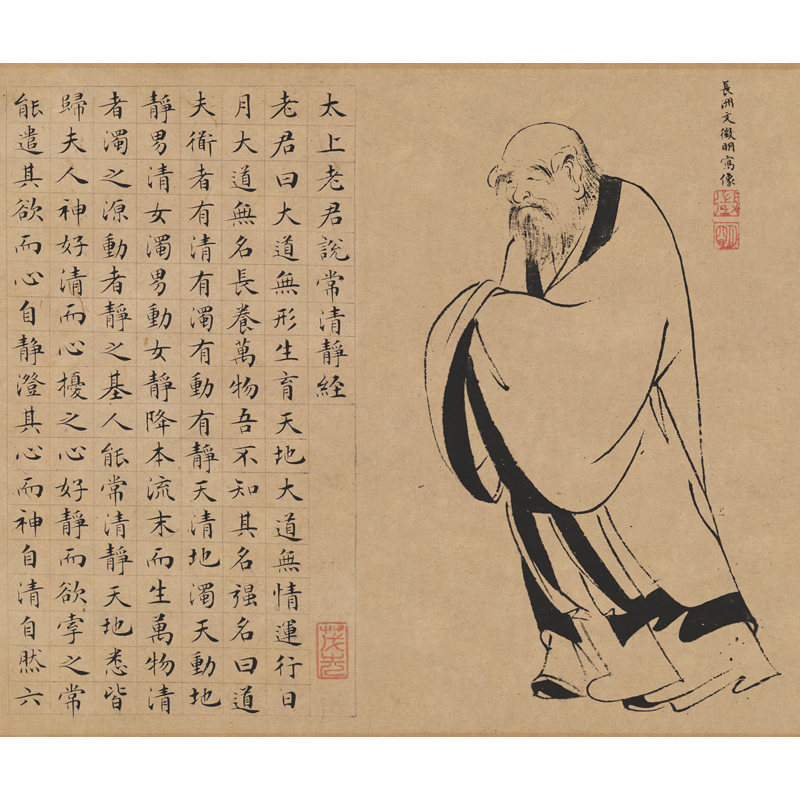 長洲文徵明寫像
太上老君說常清靜經
老君曰大道無形生育天地大道無情運行日
月大道無名長養萬物吾不知其名强名曰道
夫衜者有清有濁有動有靜天清地濁天動地
靜男清女濁男動女靜降本流末而生萬物清
者濁之源動者靜之基人能常清靜天地悉皆
歸夫人神好清而心擾之心好靜而欲牽之常
能遣其欲而心自靜澄其心而神自清自然六